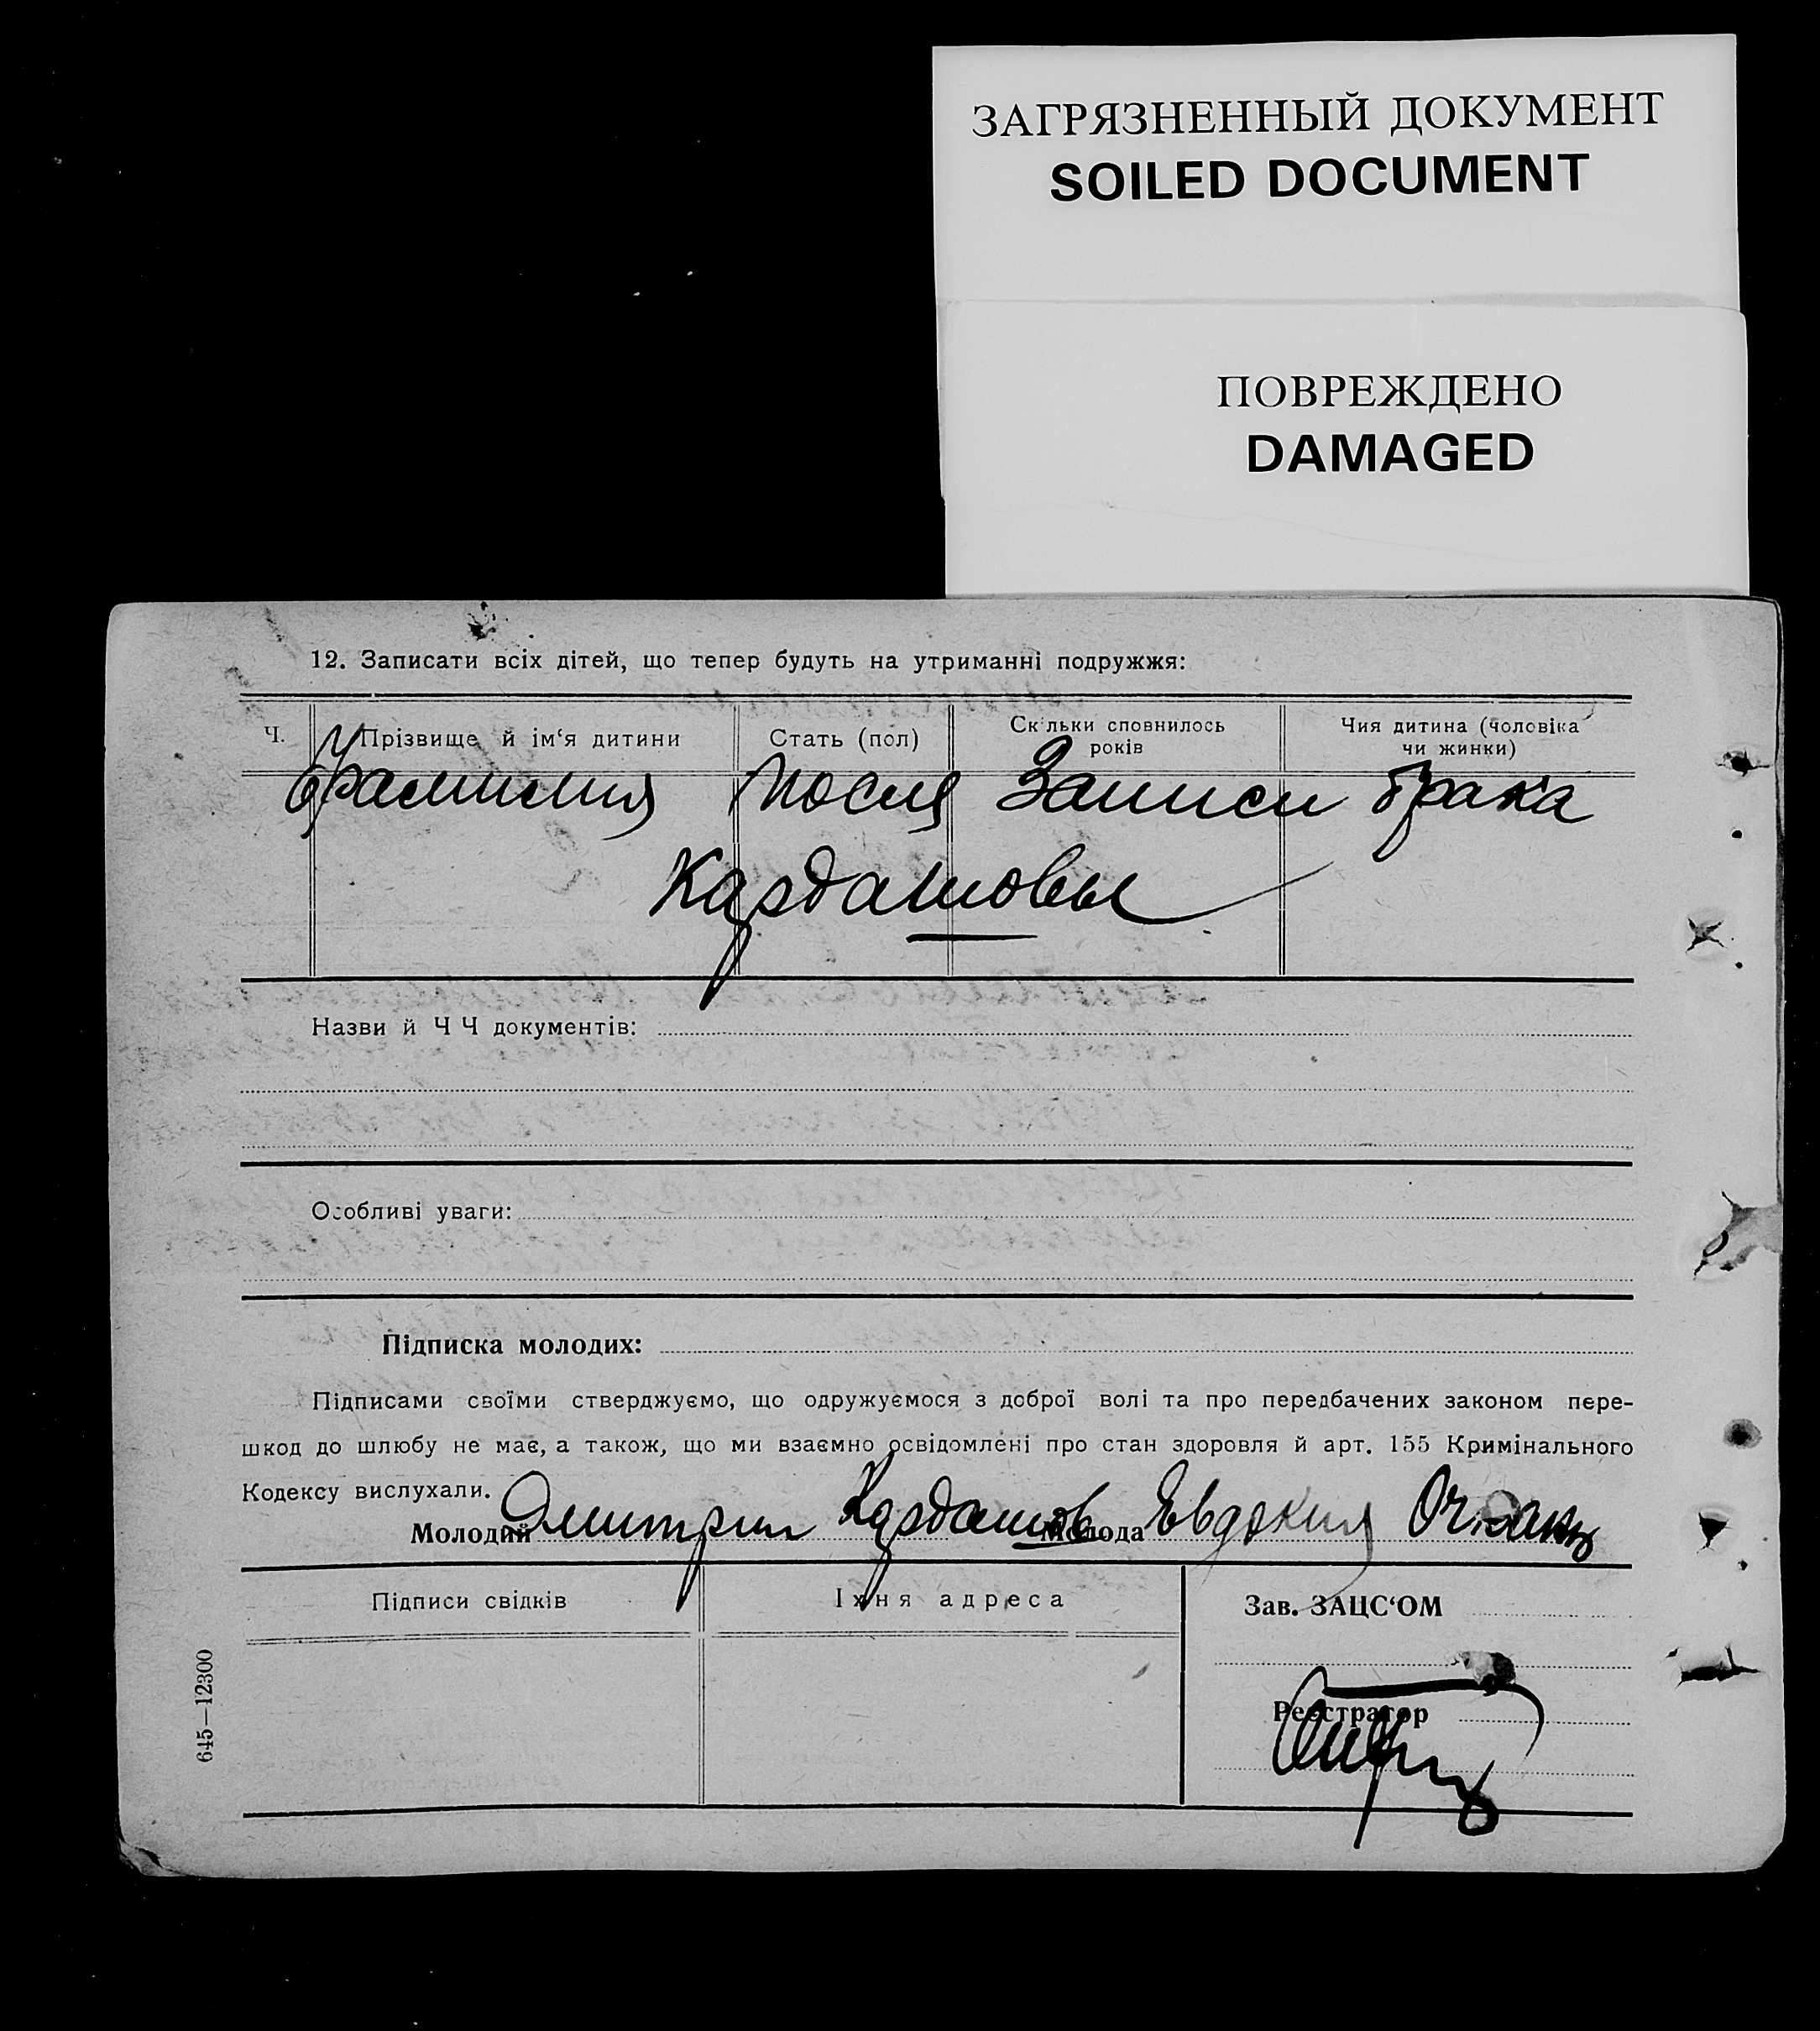 ЗАГРЯЗНЕННЫЙ ДОКУМЕНТ
SOILED DOCUMENT
ПОВРЕЖДЕНО
DAMAGED
12. Записати всіх дітей, що тепер будуть на утриманні подружжя:
Ч. Прізвище й ім‘я дитини Стать (пол) Скільки сповнилось років Чия дитина (чоловіка чи жинки)
Фамилия после Записи брака
Кардашовы
Назви й Ч Ч документів:
Особливі уваги:
Підписка молодих:
Підписами своїми стверджуємо, що одружуємося з доброї волі та про передбачених законом пере-
шкод до шлюбу не має, а також, що ми взаємно освідомлені про стан здоровля й арт. 155 Кримінального
Кодексу вислухали.
Молодий Дмитрий Кардашов Молода Евдокия
Підписи свідків Їхня адреса Зав. ЗАЦС‘ОМ
Реєстратор
645—12300